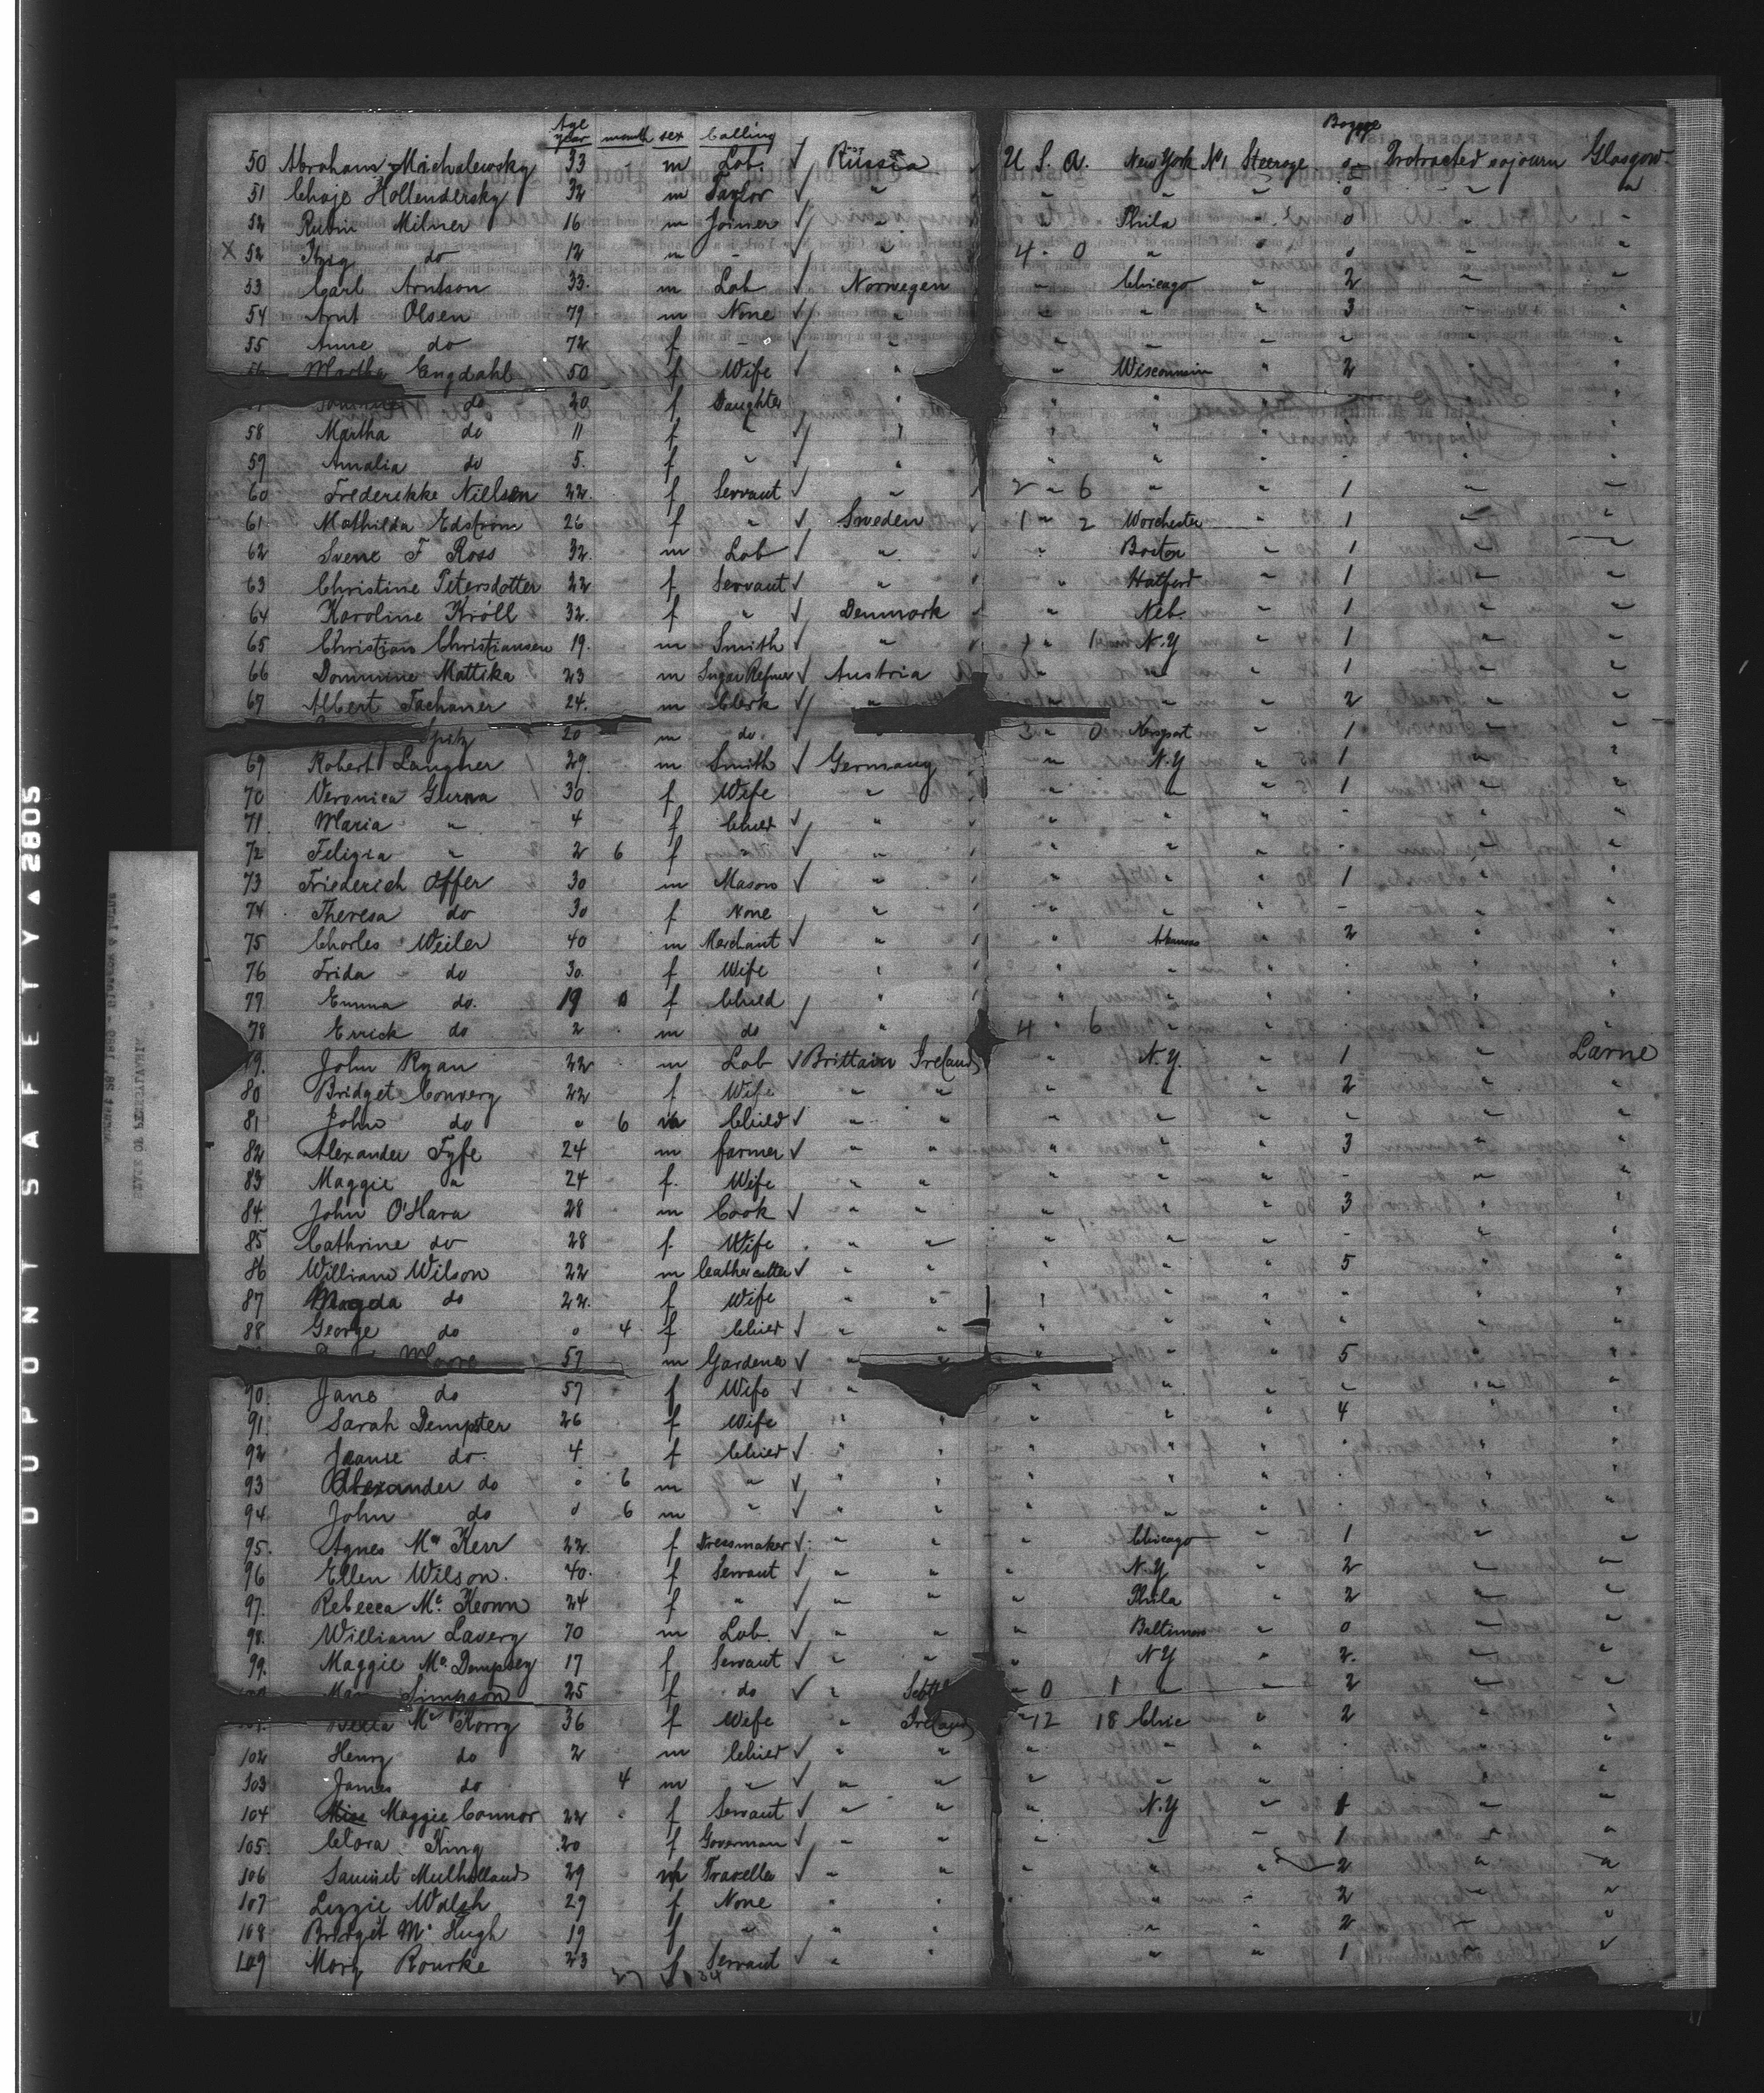 Age year month sex Calling Bagge
50 Abraham Michalewsky 33 m Lab. ✓ Russia U. S. A. New York No 1 Steerage 0 Protracted sojourn Glasgow
51 Chaje Hollendersky 32 m Taylor ✓ " " " " 0 " "
52 Rubin Milner 16 m Joiner ✓ " " Phila " 0 " "
X 52 Itzig do 12 m - ✓ " 4 " 0 " " 0 " "
53 Carl Arntson 33. m Lab ✓ Norwegen " Chicago " 2 " "
54 Arnt Olsen 79 m None ✓ " " " " 3 " "
55 Anne do 72 f - ✓ " " " " " " "
56 Martha Engdahl 50 f Wife ✓ " " Wisconsin " 2 " "
do 20 f Daughter " " " " " "
58 Martha do 11 f " ✓ " " " " " "
59 Amalia do 5. f " ✓ " " " " " "
60 Frederikke Nielsen 22. f Servant ✓ " 2 " 6 " " 1 " "
61 Mathilda Edstrom 26 f " ✓ Sweden 1 " 2 Worchester " 1 " "
62 Svene F Ross 32. m Lab ✓ " " Boston " 1 " "
63 Christine Petersdotter 22 f Servant ✓ " " Hatford " 1 " "
64 Karoline Kröll 32. f " ✓ Denmark " Neb. " 1 " "
65 Christian Christiansen 19. m Smith ✓ " 1 " 1 N.Y " 1 " "
66 Dominine Mattika 23 m Sugar Refiner ✓ Austria " " " 1 " "
67 Albert Tachaner 24. m Clerk ✓ " " " 2 " "
Spitz 20 m do. ✓ 3 " 0 Newport " 1 " "
69 Robert Langner 29. m Smith ✓ Germany " N.Y " 1 " "
70 Veronica Gurna 30 f Wife " " " " 1 " "
71 Maria " 4 f Child ✓ " " " " - " "
72 Feligia " 2 6 f " ✓ " " " " - " "
73 Friederich Offer 30 m Mason ✓ " " " " 1 " "
74 Theresa do 30 f None " " " " - " "
75 Charles Weiler 40 m Merchant ✓ " " Arkansas " 2 " "
76 Frida do 30. f Wife " " " " " "
77 Emma do. 19 0 f Child ✓ " " " " " "
78 Errick do 2 m do ✓ " 4 " 6 " " " "
79. John Ryan 22 m Lab ✓ Brittain Ireland " N.Y. " 1 " Larne
80 Bridget Convery 22 f Wife " " " " " 2 " "
81 John do " 6 m Child ✓ " " " " " " " "
82 Alexander Fyfe 24 m farmer ✓ " " " " " 3 " "
83 Maggie " 24 f. Wife " " " " " - " "
84. John O'Hara 28 m Cook ✓ " " " " " 3 " "
85 Cathrine do 28 f. Wife " " " " " - " "
86 William Wilson 22 m Leathercutter ✓ " " " " " 5 " "
87 Magda do 22. f Wife " " " " " " " "
88 George do 0 4 f Child ✓ " " " " " " " "
Moore 57 m Gardener ✓ " " " " 5 " "
90. Jane do 57 f Wife ✓ " " " " " " "
91. Sarah Dempster 26 f Wife " " " " " 4 " "
92 Jeanie do. 4 f Child ✓ " " " " " " "
93 Alexander do 0 6 m " ✓ " " " " " " "
94. John do 0 6 m " ✓ " " " " " " "
95. Agnes Mc Kerr 22. f Dressmaker ✓ " " " Chicago " 1 " "
96 Ellen Wilson. 40. f Servant ✓ " " " N.Y " 2 " "
97. Rebecca Mc. Keown 24 f " ✓ " " " Phila " 2 " "
98. William Lavery 70 m Lab. ✓ " " " Baltimore " 0 " "
99. Maggie Mc Dempsey 17 f Servant ✓ " " " NY " 2. " "
Simpson 25 f do ✓ " " 0 1 " " 2 " "
Bella Mc Korry 36 f Wife " Ireland " 12 18 Chic " 2 " "
102 Henry do 2 m Child ✓ " " " " " " "
103 James do 4 m " ✓ " " " " " " "
104 Miss Maggie Connor 22 f Servant ✓ " " " N.Y " 1 " "
105. Clara King 20 f Goverman ✓ " " " " " 1 " "
106 Samuel Mulholland 29 m Traveller ✓ " " " " 2 " "
107 Lizzie Walsh 29 f None " " " " " 2 " "
108 Bridget Mc Hugh 19 f " " " " " 2 " "
109 Mary Rourke 23 f Servant ✓ " " " " 1 " "
DUPONT SAFETY ▲ 2805